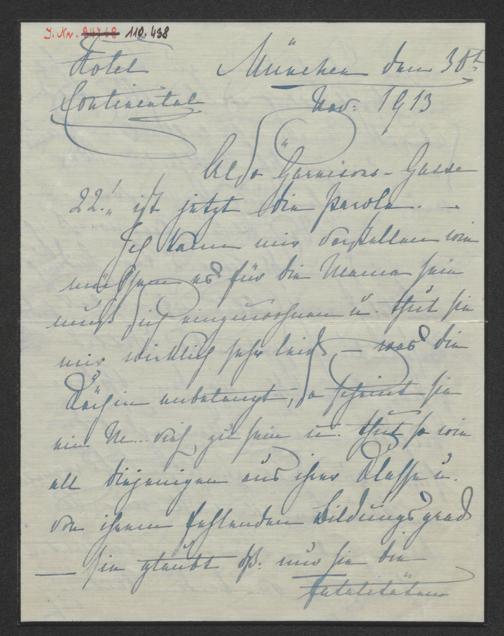 J. Nr. 110.438
Hotel München den 30t
Continental Nov: 1913
Also "Garnisons-Gasse
22!" ist jetzt die Parole. –
Ich kann mir vorstellen wie
mühsam es für die Mama sein
muß sich einzuwohnen u. thut sie
mir wirklich sehr leid, – was die
Köchin anbelangt, so scheint sie
ein M... vieh zu sein u. thut so wie
all diejenigen aus ihrer Klasse u.
von ihrem fehlenden Bildungsgrad
– sie glaubt ds: nur sie die
Fatalitäten